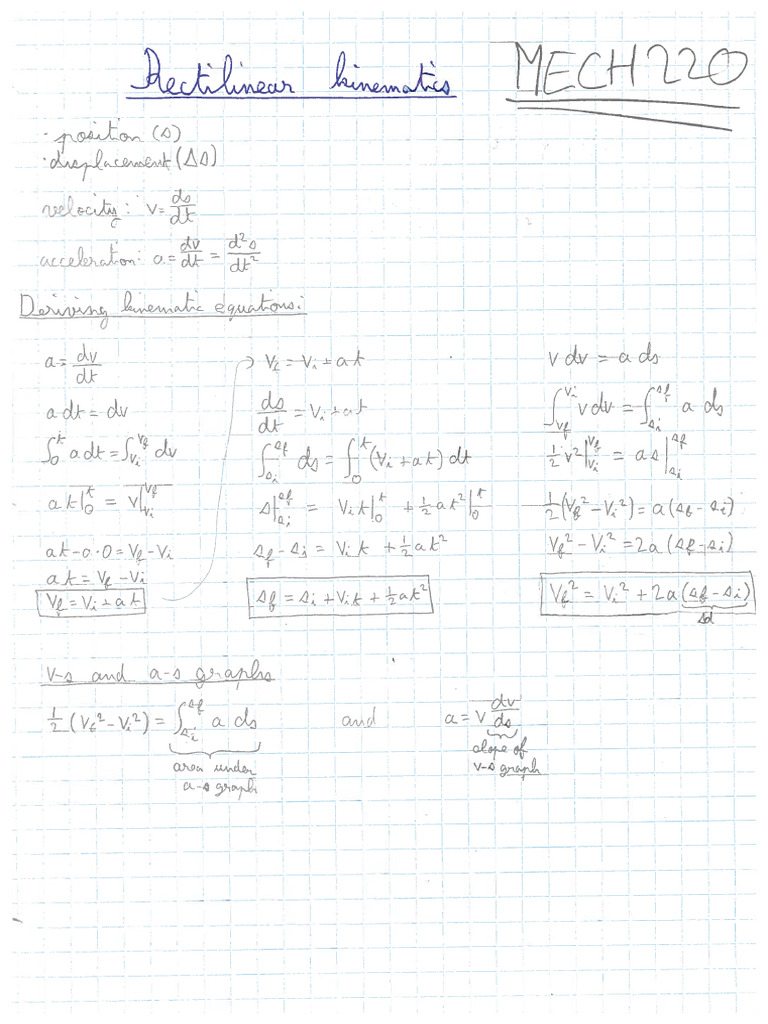 Rectilinear kinematics
MECH 220
· position (s)
· displacement (Δs)
velocity: v = ds/dt
acceleration: a = dv/dt = d²s/dt²
Deriving kinematic equations:
a = dv/dt
a dt = dv
∫₀ᵗ a dt = ∫_{vi}^{vf} dv
at|₀ᵗ = v|_{vi}^{vf}
at - a·0 = vf - vi
at = vf - vi
vf = vi + at
→ vf = vi + at
ds/dt = vi + at
∫_{si}^{sf} ds = ∫₀ᵗ (vi + at) dt
s|_{si}^{sf} = vit|₀ᵗ + ½at²|₀ᵗ
sf - si = vit + ½at²
sf = si + vit + ½at²
v dv = a ds
∫_{vf}^{vi} v dv = ∫_{si}^{sf} a ds
½v²|_{vi}^{vf} = as|_{si}^{sf}
½(vf² - vi²) = a(sf - si)
vf² - vi² = 2a(sf - si)
vf² = vi² + 2a(sf - si)
v-s and a-s graphs
½(vf² - vi²) = ∫_{si}^{sf} a ds and a = v dv/ds
area under
a-s graph
slope of
v-s graph